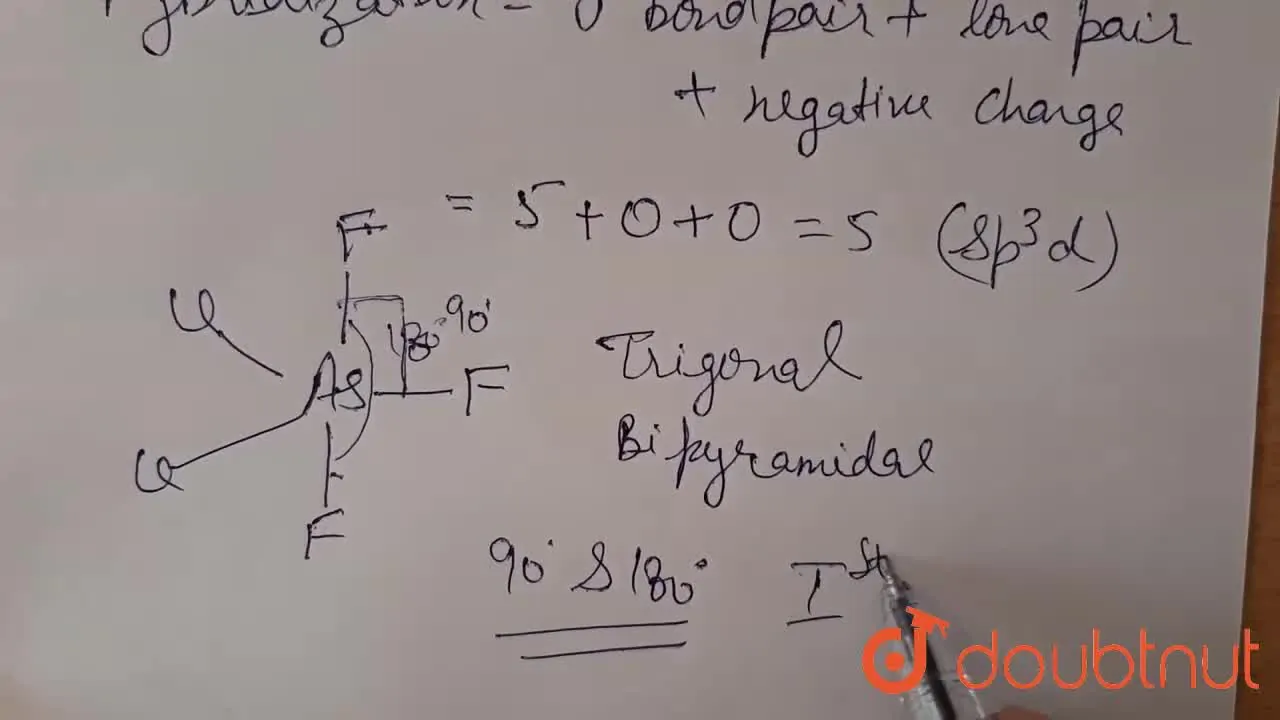 Hybridization = σ bond pair + lone pair
+ negative charge
= 5 + 0 + 0 = 5 (sp³d)
F
Cl
180° 90°
As F
Trigonal
Cl
Bipyramidal
F
90° & 180° Ist
doubtnut